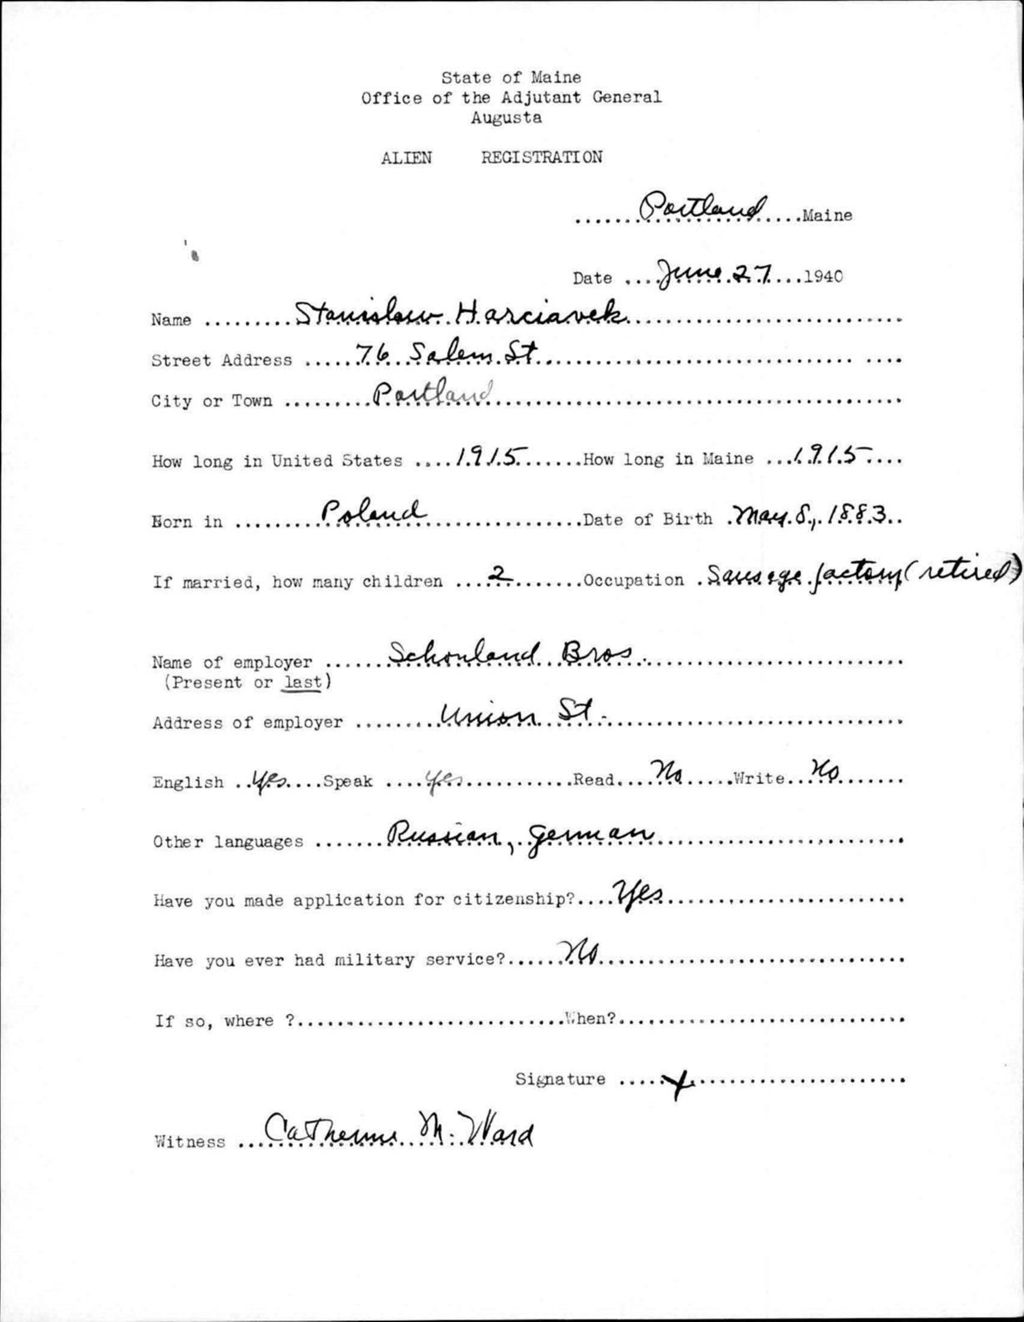 State of Maine
Office of the Adjutant General
Augusta
ALIEN REGISTRATION
.......Portland.....Maine
Date ....June 27....1940
Name .........Stanislaw Harciavek..............................
Street Address .....76 Salem St....................................
City or Town .........Portland............................................
How long in United States ....1915.......How long in Maine ...1915....
Born in .........Poland..................Date of Birth .May 8, 1883..
If married, how many children ...2........Occupation .Sausage factory (retired)
Name of employer ......Schonland Bros............................
(Present or last)
Address of employer .........Union St..............................
English ..Yes....Speak ....yes............Read...No.....Write..No.......
Other languages .......Russian, German..........................
Have you made application for citizenship?....Yes.........................
Have you ever had military service?......No...............................
If so, where ?...........................When?.............................
Signature .....X......................
Witness ...Catherine M. Ward